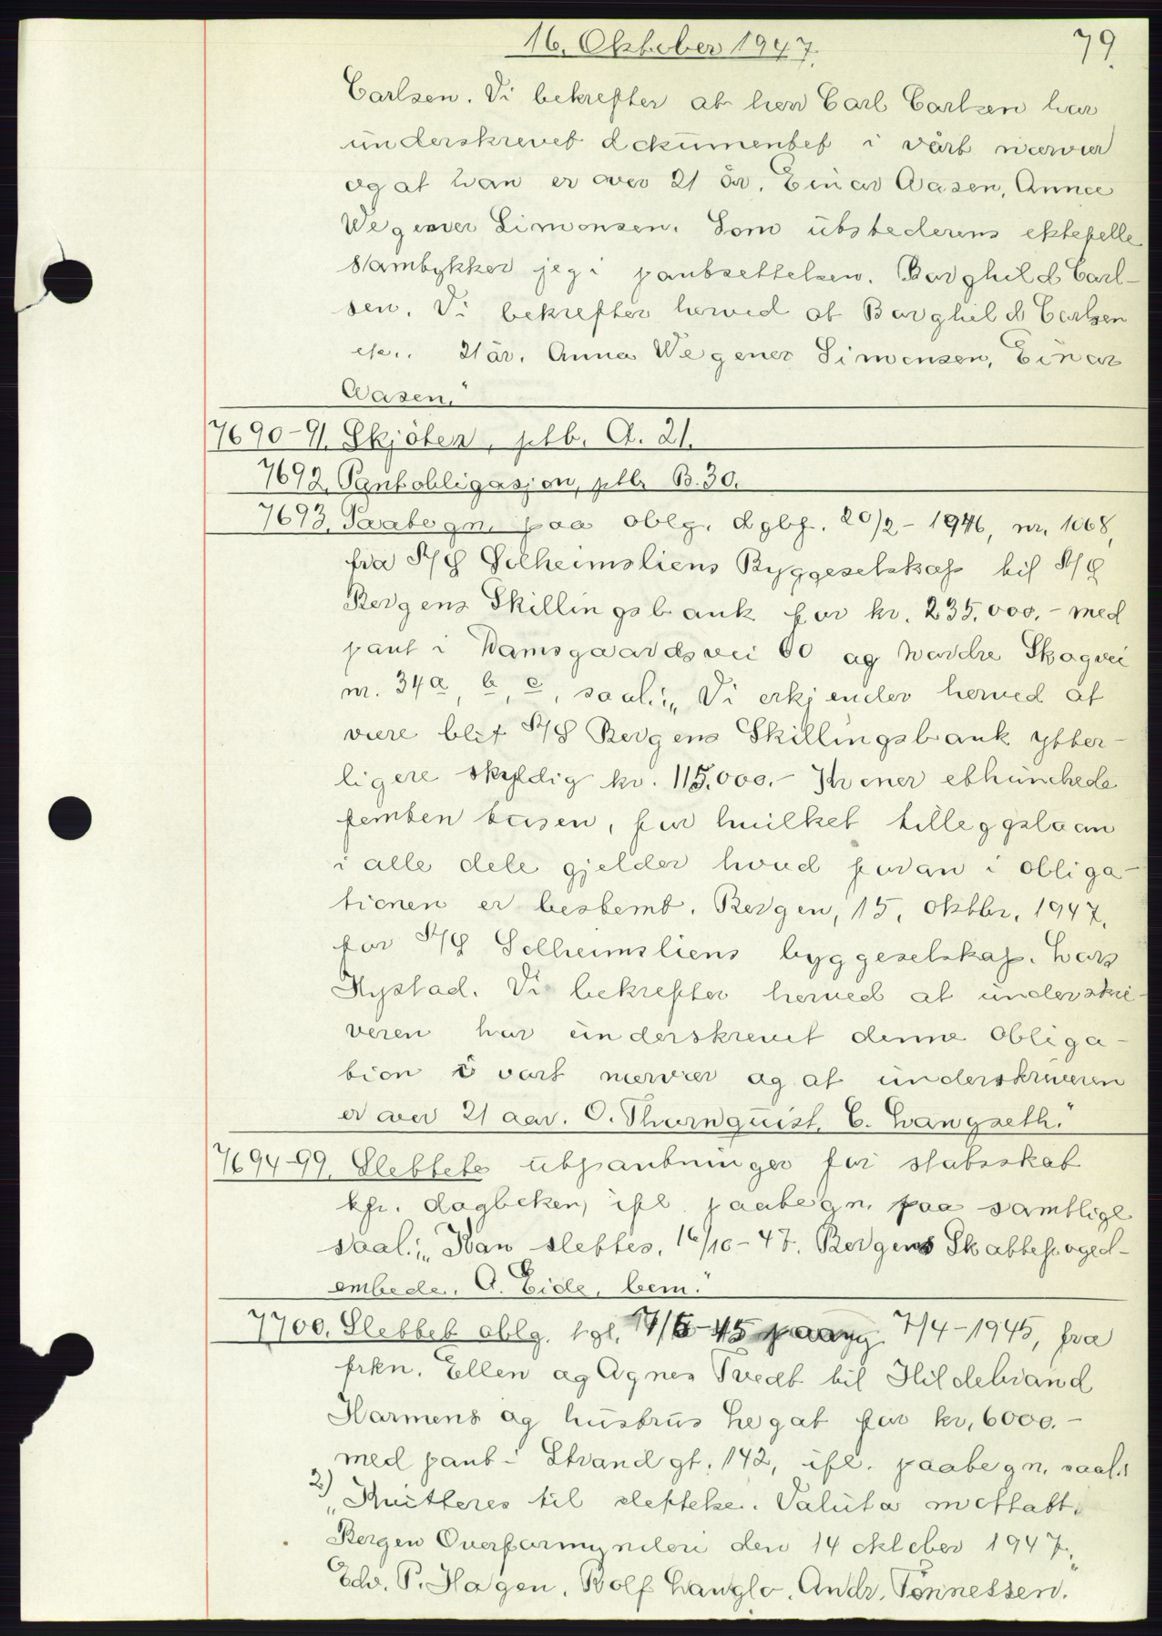 16. Oktober 1947.
79.
Carlsen. Vi bekrefter at herr Carl Carlsen har
underskrevet dokumentet i vårt nærvær
og at han er over 21 år. Einar Aasen, Anna
Wegener Simonsen. Som utstederens ektefelle
samtykker jeg i pantsettelsen. Borghild Carl-
sen. Vi bekrefter herved at Borghild Carlsen
etc.. 21 år. Anna Wegener Simonsen, Einar
Aasen."
7690-91. Skjöter, ptb. A. 21.
7692. Pantobligasjon, ptb. B. 30.
7693. Paategn. paa oblg. dgbf. 20/2 - 1946, nr. 1068,
fra A/S Solheimsliens Byggeselskap til A/S
Bergens Skillingsbank for kr. 235.000.- med
pant i Damsgaardsvei 60 og Nordre Skogvei
nr. 34a, b, c, saal.: „Vi erkjender herved at
være blit A/S Bergens Skillingsbank ytter-
ligere skyldig kr. 115.000.- Kroner ethundrede
femten tusen, for hvilket tilleggslaan
i alle dele gjelder hvad foran i obliga-
tionen er bestemt. Bergen, 15. oktbr. 1947.
for A/S Solheimsliens byggeselskap. Lars
Hystad. Vi bekrefter herved at underskri-
veren har underskrevet denne obliga-
tion i vart nærvær og at underskriveren
er over 21 aar. O. Thornquist. E. Langseth."
7694-99. Slettete utpantninger for statsskat
kfr. dagboken, ifl. paategn. paa samtlige
saal.: „Kan slettes, 16/10-47. Bergens Skattefoged-
embede. A. Eide, bem."
7700. Slettet oblg. tgl. 7/4-1945, fra
frkn. Ellen og Agnes Tvedt til Hildebrand
Harmens og hustrus Legat for kr. 6000.-
med pant i Strandgt. 142, ifl. paategn. saal.:
2) „Kvitteres til slettelse. Valuta mottatt.
Bergen Overformynderi den 14 oktober 1947.
Edv. P. Hagen. Rolf Langlo. Andr. Tönnessen."